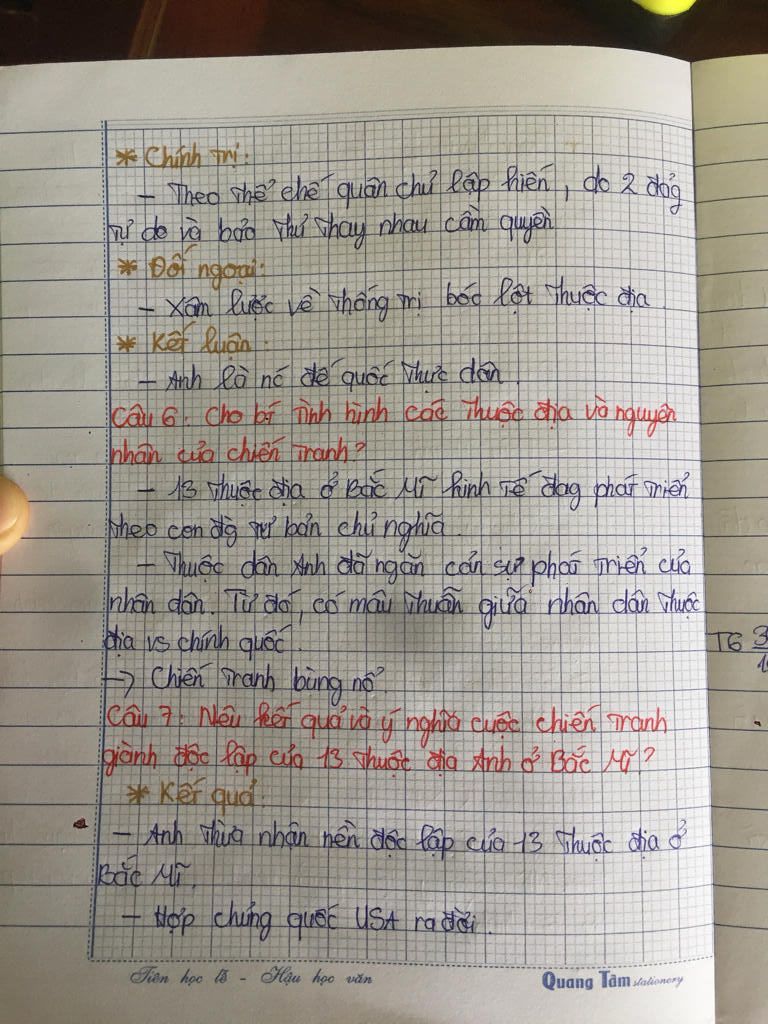 * Chính trị:
- Theo thể chế quân chủ lập hiến, do 2 đảg
tự do và bảo thủ thay nhau cầm quyền
* Đối ngoại:
- Xâm lược về thống trị bóc lột thuộc địa.
* Kết luận:
- Anh là nc đế quốc thực dân.
Câu 6: Cho bt tình hình các thuộc địa và nguyên
nhân của chiến tranh?
- 13 thuộc địa ở Bắc Mĩ kinh tế đag phát triển
theo con đg tư bản chủ nghĩa.
- Thuộc dân Anh đã ngăn cản sự phát triển của
nhân dân. Từ đó, có mâu thuẫn giữa nhân dân thuộc
địa vs chính quốc.
→ Chiến tranh bùng nổ.
Câu 7: Nêu kết quả và ý nghĩa cuộc chiến tranh
giành độc lập của 13 thuộc địa Anh ở Bắc Mĩ?
* Kết quả:
- Anh thừa nhận nền độc lập của 13 thuộc địa ở
Bắc Mĩ.
- Hợp chúng quốc USA ra đời.
Tiên học lễ - Hậu học văn Quang Tâm stationery
TG 3